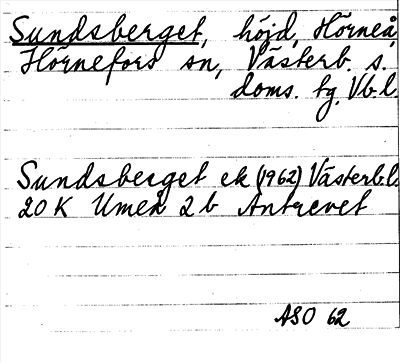 Sundsberget, höjd, Hörneå,
Hörnefors sn, Västerb. s.
doms. tg, Vb.l.
Sundsberget ek (1962) Västerb.l.
20 K Umeå 2b Antrevet
ASO 62